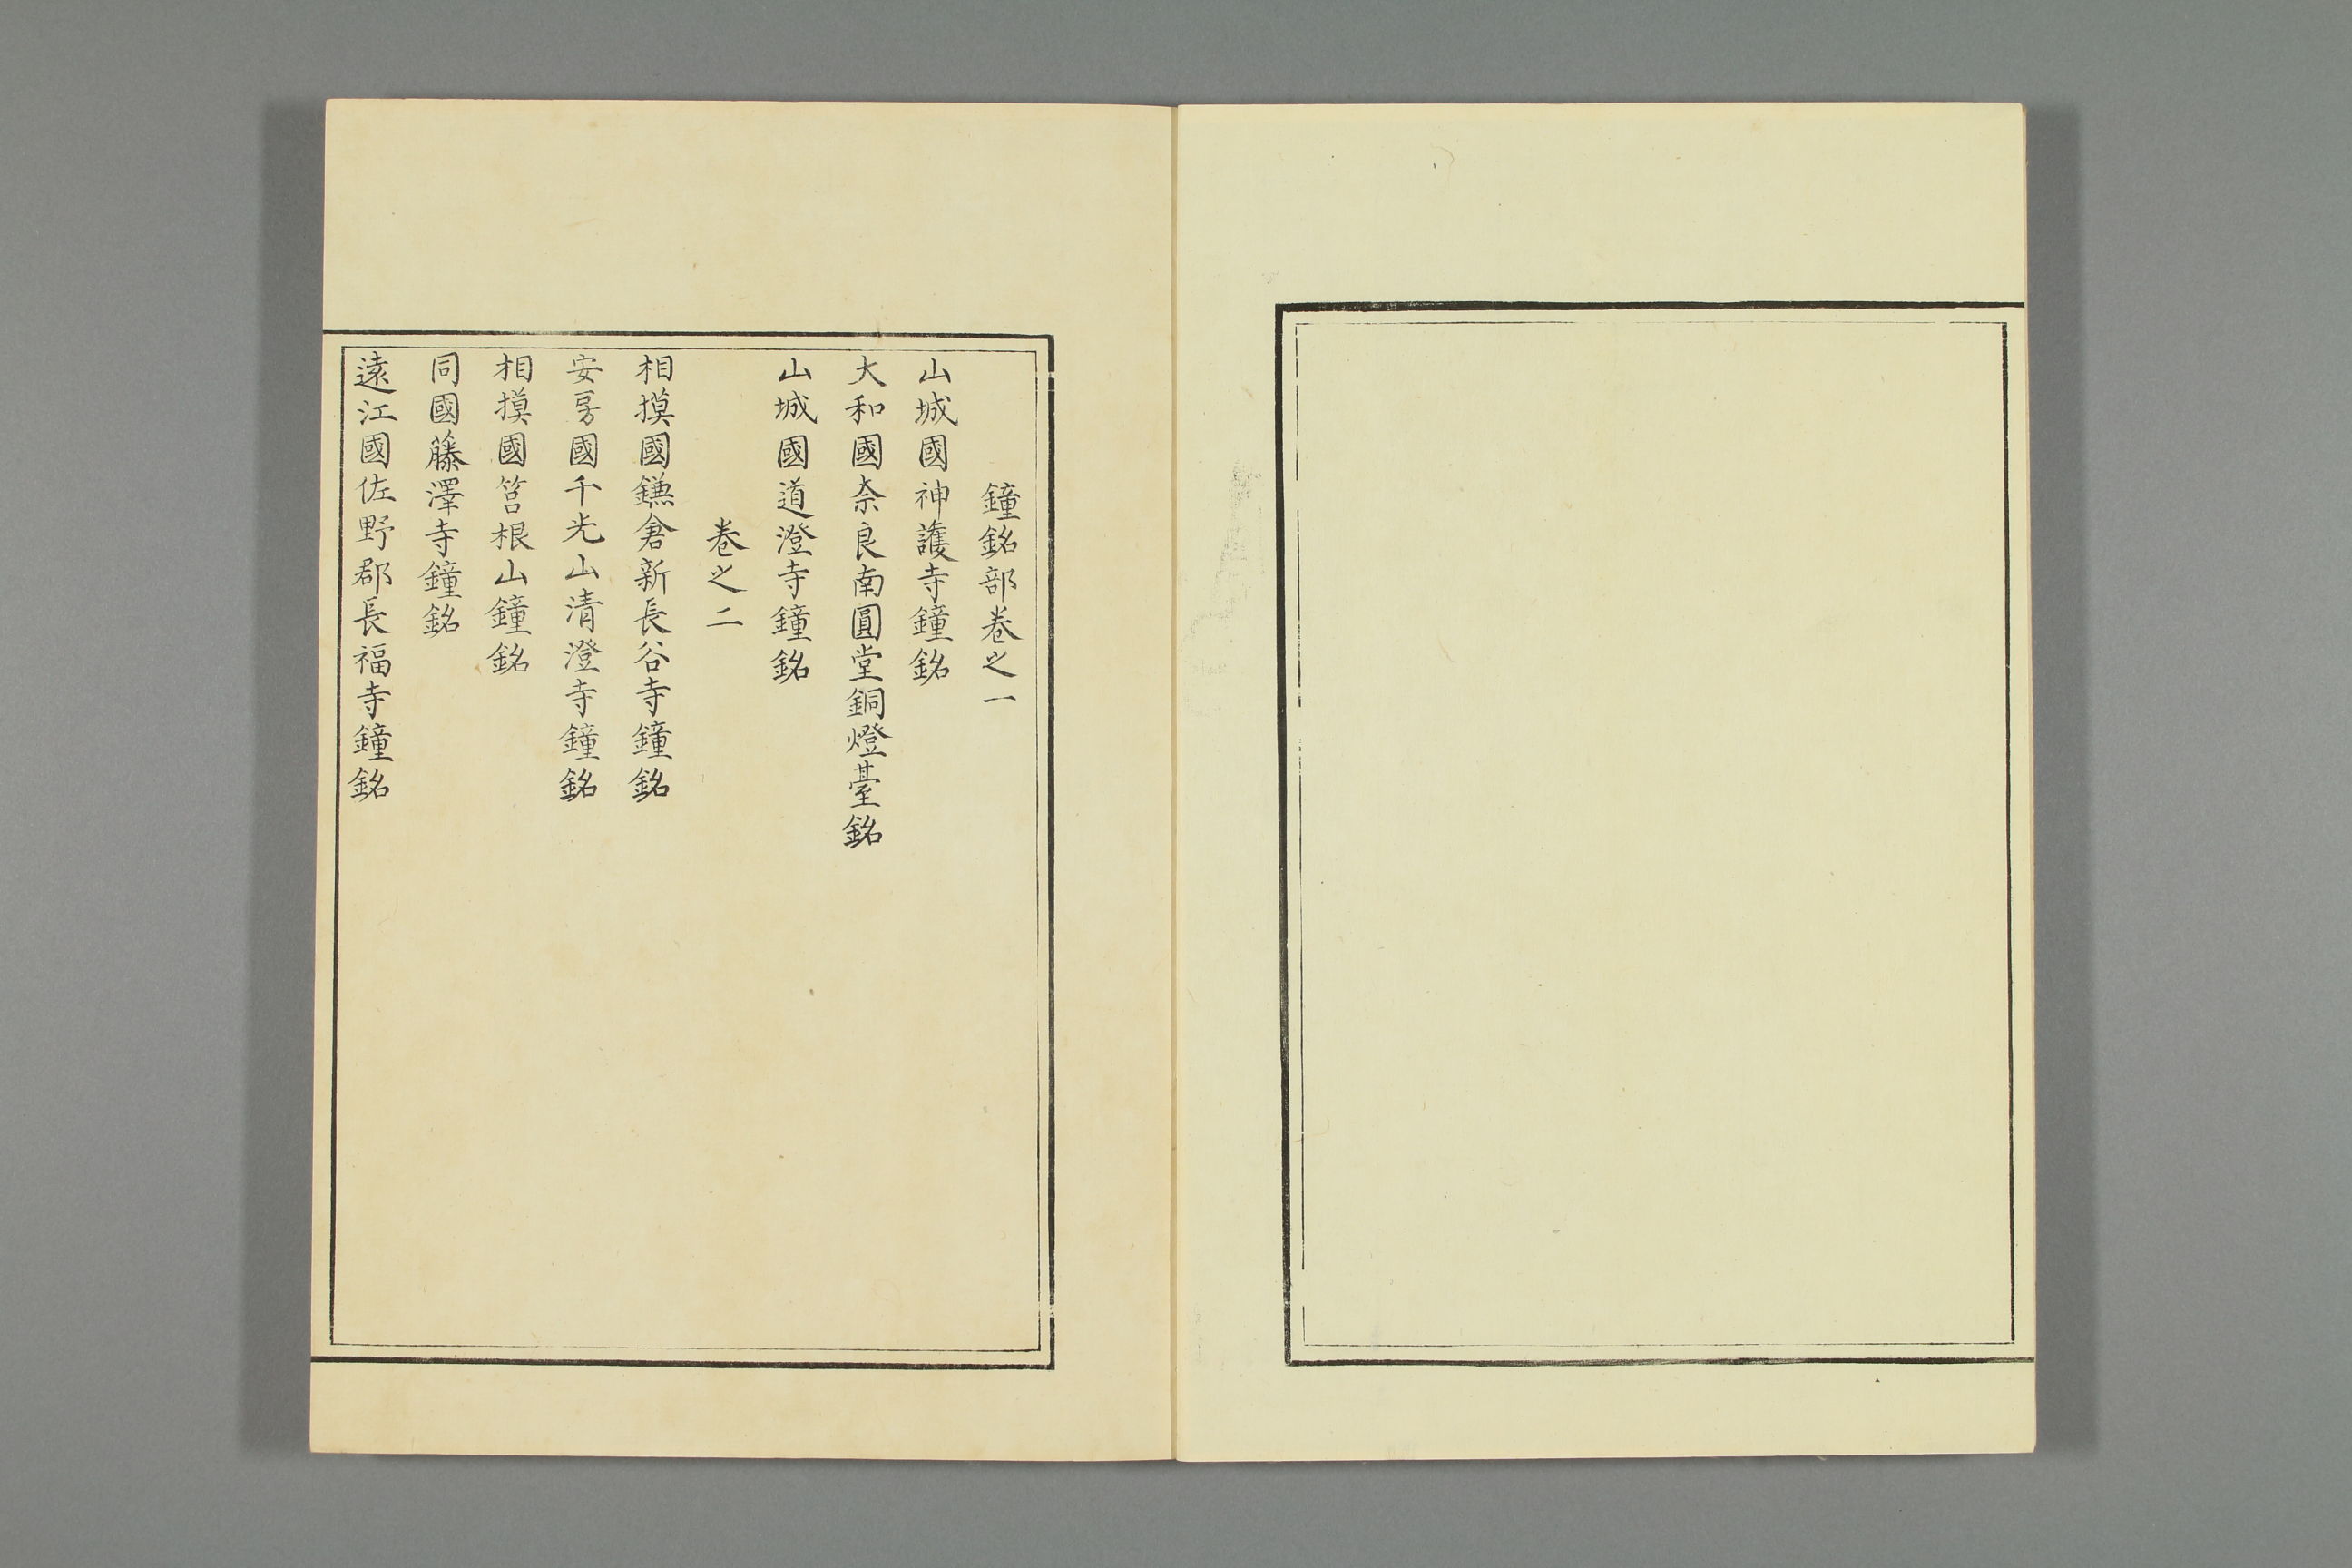 鐘銘部卷之一
山城國神護寺鐘銘
大和國奈良南圓堂銅燈臺銘
山城國道澄寺鐘銘
卷之二
相摸國鎌倉新長谷寺鐘銘
安房國千光山清澄寺鐘銘
相摸國筥根山鐘銘
同國藤澤寺鐘銘
遠江國佐野郡長福寺鐘銘